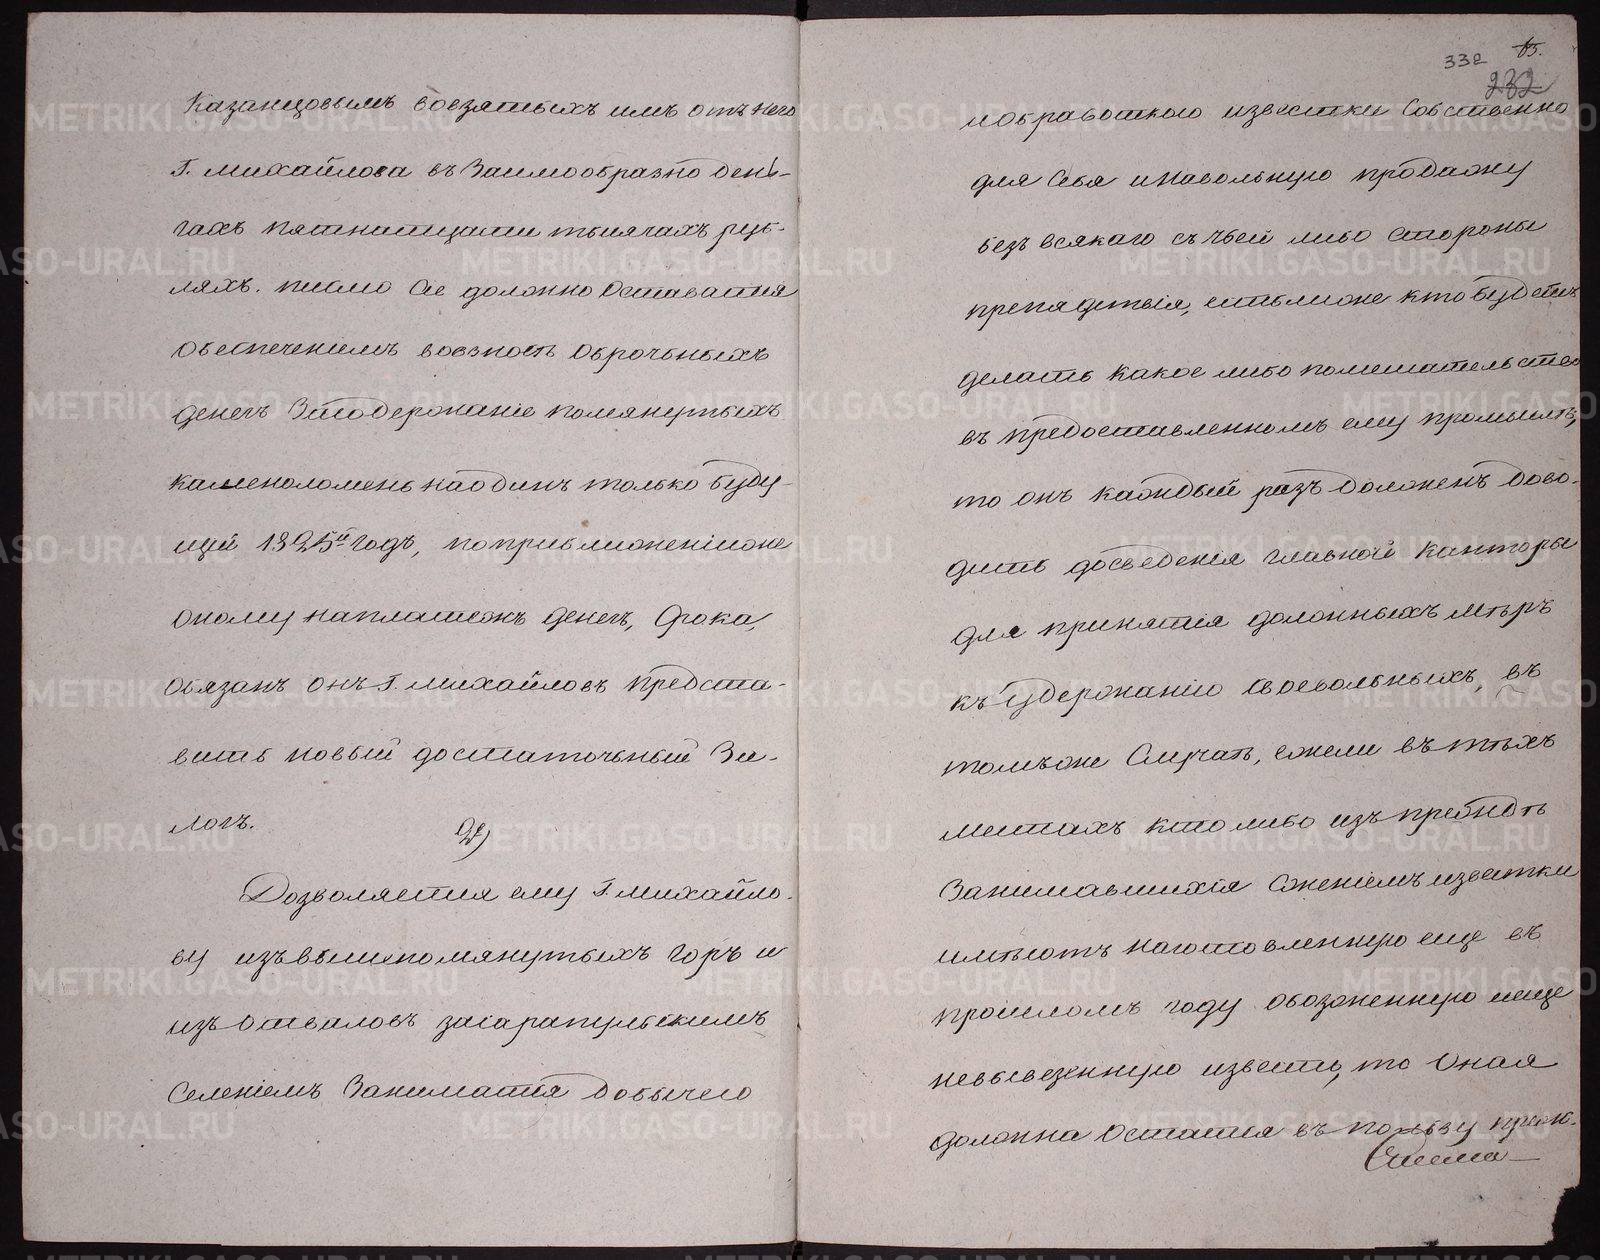 Казанцовымъ вовзятыхъ имъ отъ него
Г. Михайлова въ Заимообразно день-
гахъ пятнатцати тысячахъ руб-
ляхъ. писмо Сіе должно Оставатся
Обеспеченіемъ Оброчныхъ
денегъ Засодержаніе помянутыхъ
каменоломень наодинъ только буду-
щій 1825й годъ, поприближеніиже
оному наплатежъ денегъ, Срока,
Обязанъ онъ Г. Михайловъ предста-
вить новый достаточный За-
логъ.
2)
Дозволяется ему Г. Михайло-
ву изъ вышепомянутыхъ горъ и
изъ Отваловъ засарапульскимъ
Селеніемъ Заниматся Добычею
332
232
иОбработкою известки Собственно
для Себя инавольную продажу
безъ всякаго съ чьей либо стороны
препядствія, естьлиже кто будетъ
делать какое либо помешательство
въ предоставленномъ ему промыслѣ,
то онъ каждый разъ Долженъ Дово-
дить досведенія главной канторы
для принятія должныхъ мѣръ
къ удержанію Своевольныхъ, въ
томъже Случаѣ, ежели въ тѣхъ
местахъ ктолибо изъ преждѣ
Занимавшихся Сженіемъ известки
имѣютъ наготовленную еще въ
прошломъ году Обозженную иеще
невывезенную известь, то Оная
должна Остатся въ пользу